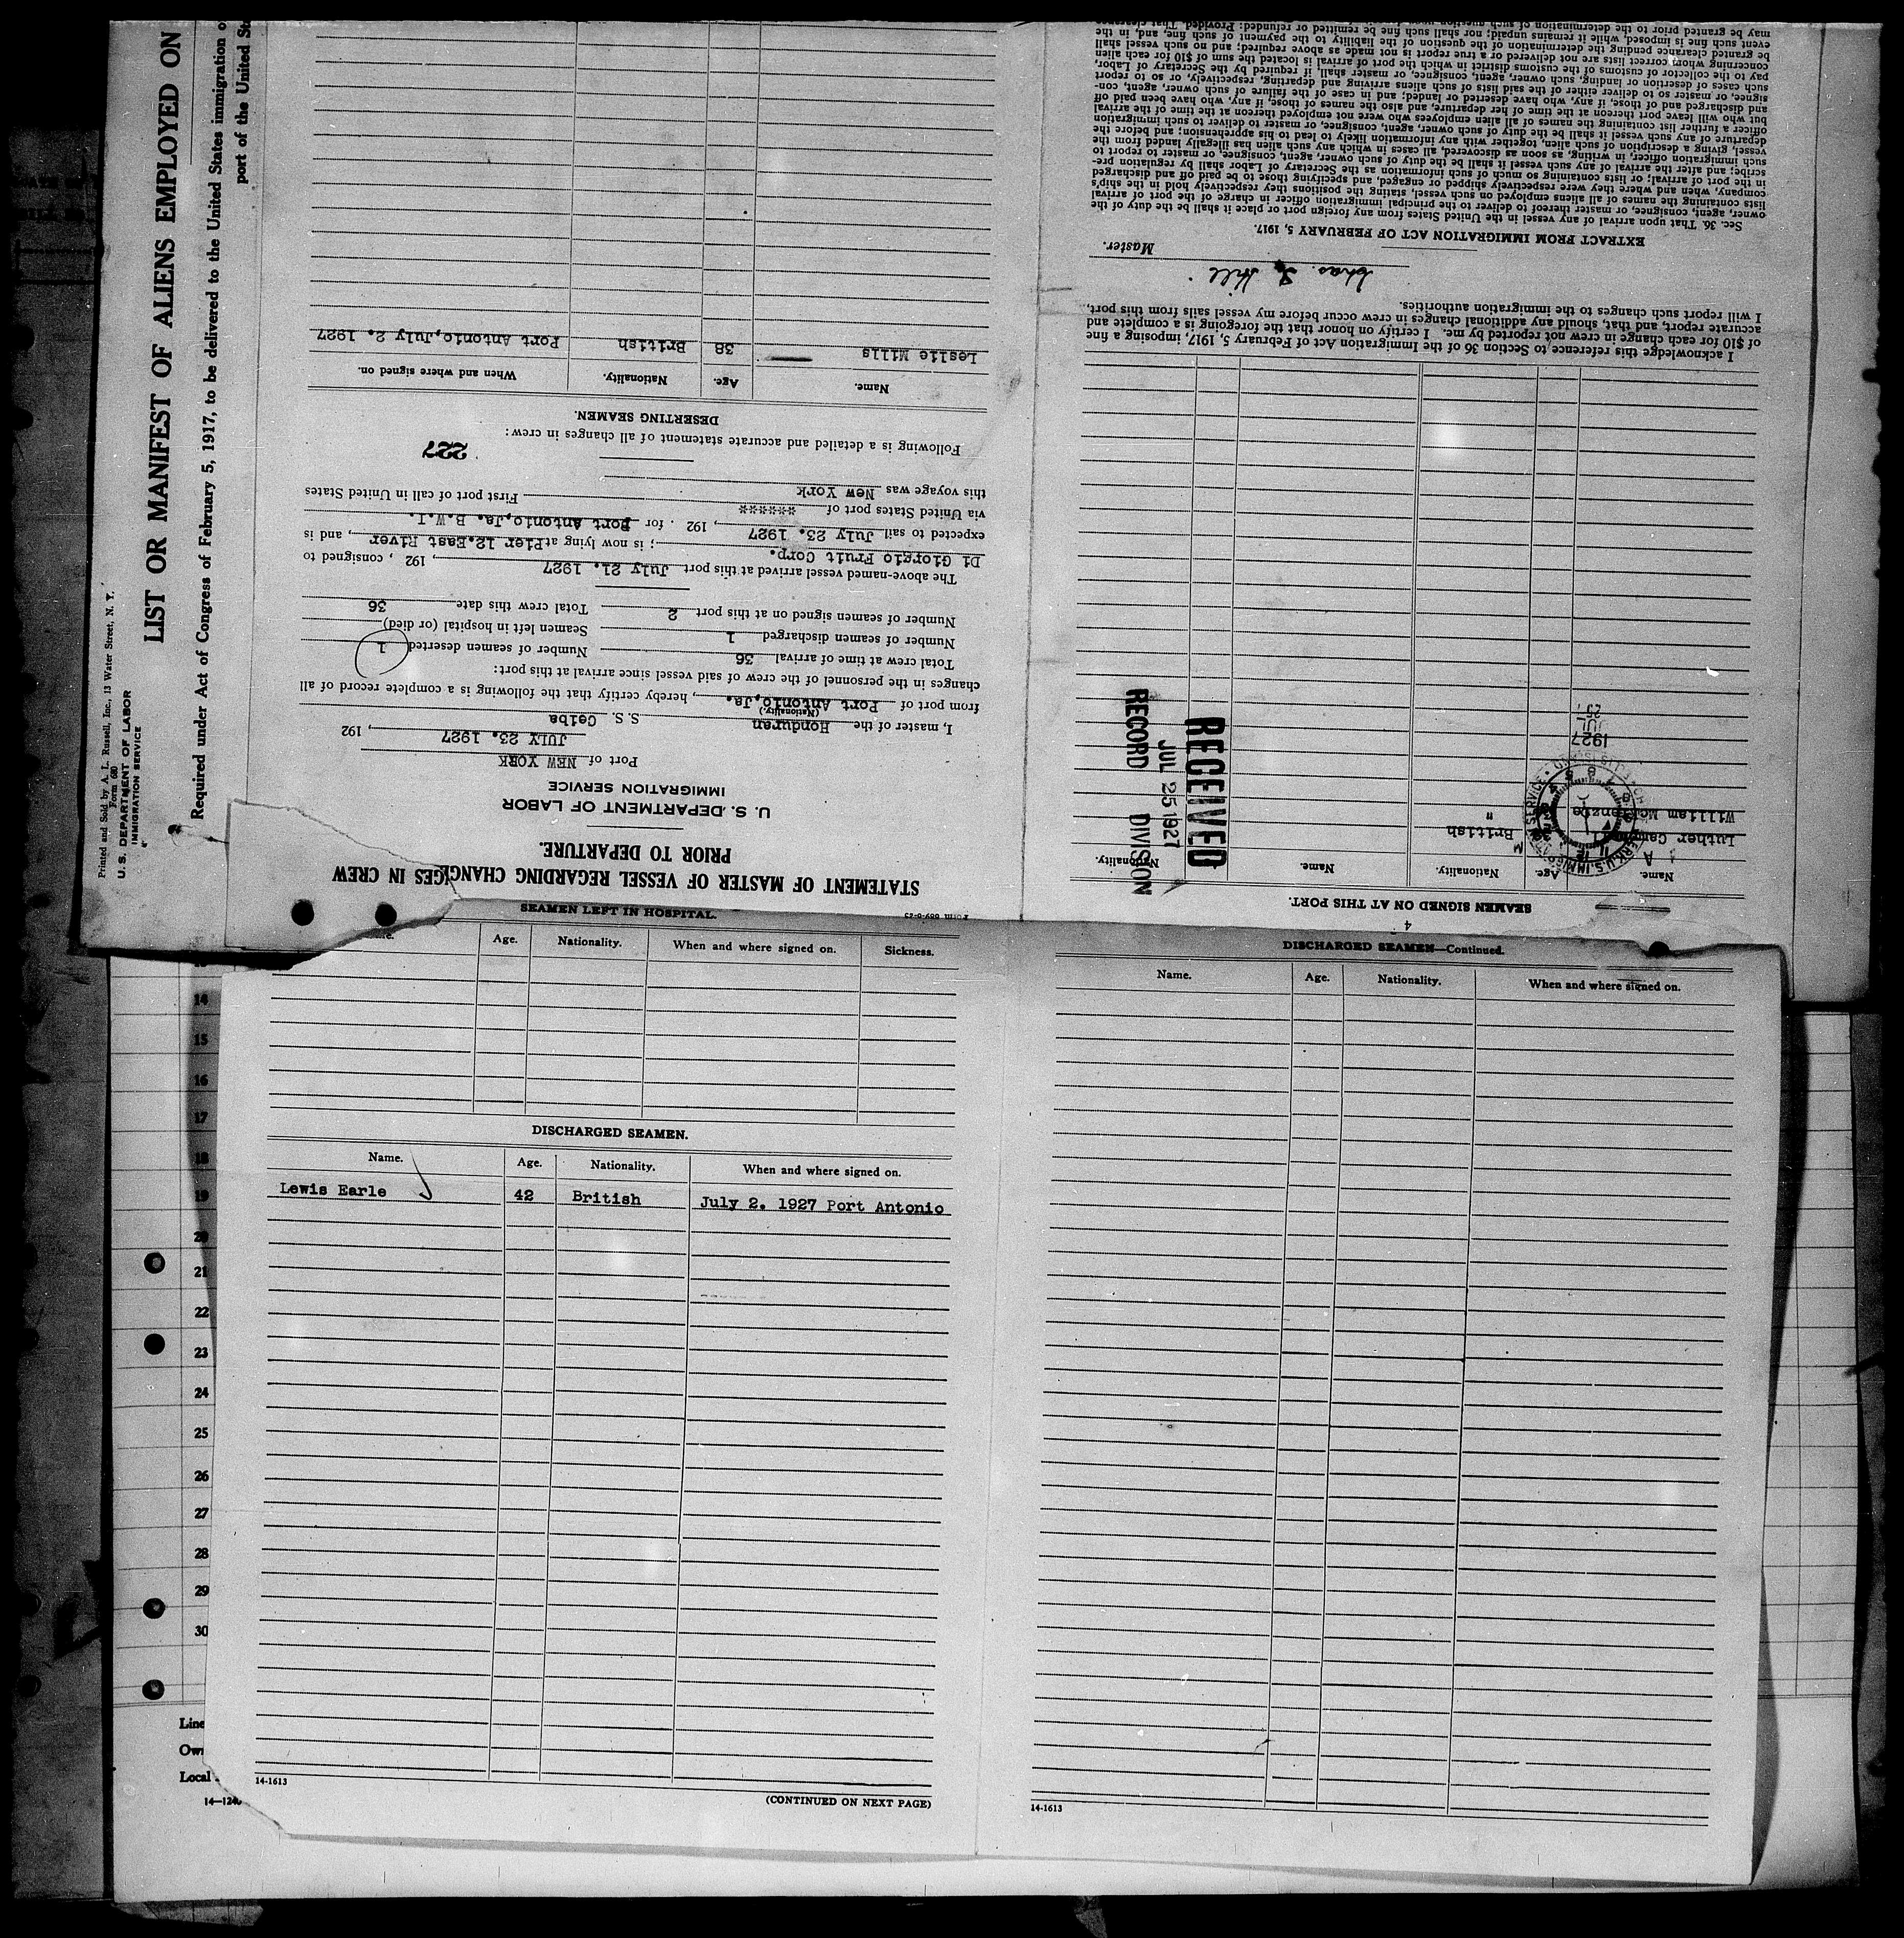 Printed and Sold by A. L. Russell, Inc., 13 Water Street, N. Y.
Form 680
U. S. DEPARTMENT OF LABOR
IMMIGRATION SERVICE
LIST OR MANIFEST OF ALIENS EMPLOYED ON
Required under Act of Congress of February 5, 1917, to be delivered to the United States immigration
port of the United
STATEMENT OF MASTER OF VESSEL REGARDING CHANGES IN CREW
PRIOR TO DEPARTURE.
U. S. DEPARTMENT OF LABOR
IMMIGRATION SERVICE
Port of NEW YORK
JULY 23. 1927, 192
I, master of the Honduran S. S. Ceiba
(Nationality.)
from port of Port Antonio, Ja., hereby certify that the following is a complete record of all
changes in the personnel of the crew of said vessel since arrival at this port:
Total crew at time of arrival 36 Number of seamen deserted 1
Number of seamen discharged 1 Seamen left in hospital (or died)
Number of seamen signed on at this port 2 Total crew this date 36
The above-named vessel arrived at this port July 21. 1927, 192 , consigned to
Di Giorgio Fruit Corp.; is now lying at Pier 12. East River, and is
expected to sail July 23. 1927, 192 . for Port Antonio, Ja. B.W.I.
via United States port of ****** First port of call in United States
this voyage was New York
227
Following is a detailed and accurate statement of all changes in crew:
DESERTING SEAMEN.
Name. Age. Nationality. When and where signed on.
Leslie Mills 38 British Port Antonio, July 2. 1927
4
SEAMEN SIGNED ON AT THIS PORT.
Name. Age. Nationality. Name. Nationality.
Luther British
William McKenzie "
1927
JUL
25
RECEIVED
JUL 25 1927
RECORD DIVISION
I acknowledge this reference to Section 36 of the Immigration Act of February 5, 1917, imposing a fine
of $10 for each change in crew not reported by me. I certify on honor that the foregoing is a complete and
accurate report, and that, should any additional changes in crew occur before my vessel sails from this port,
I will report such changes to the immigration authorities.
Chas Hill
Master.
EXTRACT FROM IMMIGRATION ACT OF FEBRUARY 5, 1917.
Sec. 36. That upon arrival of any vessel in the United States from any foreign port or place it shall be the duty of the
owner, agent, consignee, or master thereof to deliver to the principal immigration officer in charge of the port of arrival
lists containing the names of all aliens employed on such vessel, stating the positions they respectively hold in the ship's
company, when and where they were respectively shipped or engaged, and specifying those to be paid off and discharged
in the port of arrival; or lists containing so much of such information as the Secretary of Labor shall by regulation pre-
scribe; and after the arrival of any such vessel it shall be the duty of such owner, agent, consignee, or master to report to
such immigration officer, in writing, as soon as discovered, all cases in which any such alien has illegally landed from the
vessel, giving a description of such alien, together with any information likely to lead to his apprehension; and before the
departure of any such vessel it shall be the duty of such owner, agent, consignee, or master to deliver to such immigration
officer a further list containing the names of all alien employees who were not employed thereon at the time of the arrival
but who will leave port thereon at the time of her departure, and also the names of those, if any, who have been paid off
and discharged and of those, if any, who have deserted or landed; and in case of the failure of such owner, agent, con-
signee, or master so to deliver either of the said lists of such aliens arriving and departing, respectively, or so to report
such cases of desertion or landing, such owner, agent, consignee, or master shall, if required by the Secretary of Labor,
pay to the collector of customs of the customs district in which the port of arrival is located the sum of $10 for each alien
concerning whom correct lists are not delivered or a true report is not made as above required; and no such vessel shall
be granted clearance pending the determination of the question of the liability to the payment of such fine, and, in the
event such fine is imposed, while it remains unpaid; nor shall such fine be remitted or refunded: Provided, That clearance
may be granted prior to the determination of such question upon
SEAMEN LEFT IN HOSPITAL.
Age. Nationality. When and where signed on. Sickness.
DISCHARGED SEAMEN.
Name. Age. Nationality. When and where signed on.
Lewis Earle 42 British July 2. 1927 Port Antonio
14-1613
(CONTINUED ON NEXT PAGE)
DISCHARGED SEAMEN—Continued.
Name. Age. Nationality. When and where signed on.
14-1613
14
15
16
17
18
19
20
21
22
23
24
25
26
27
28
29
30
Line
Local